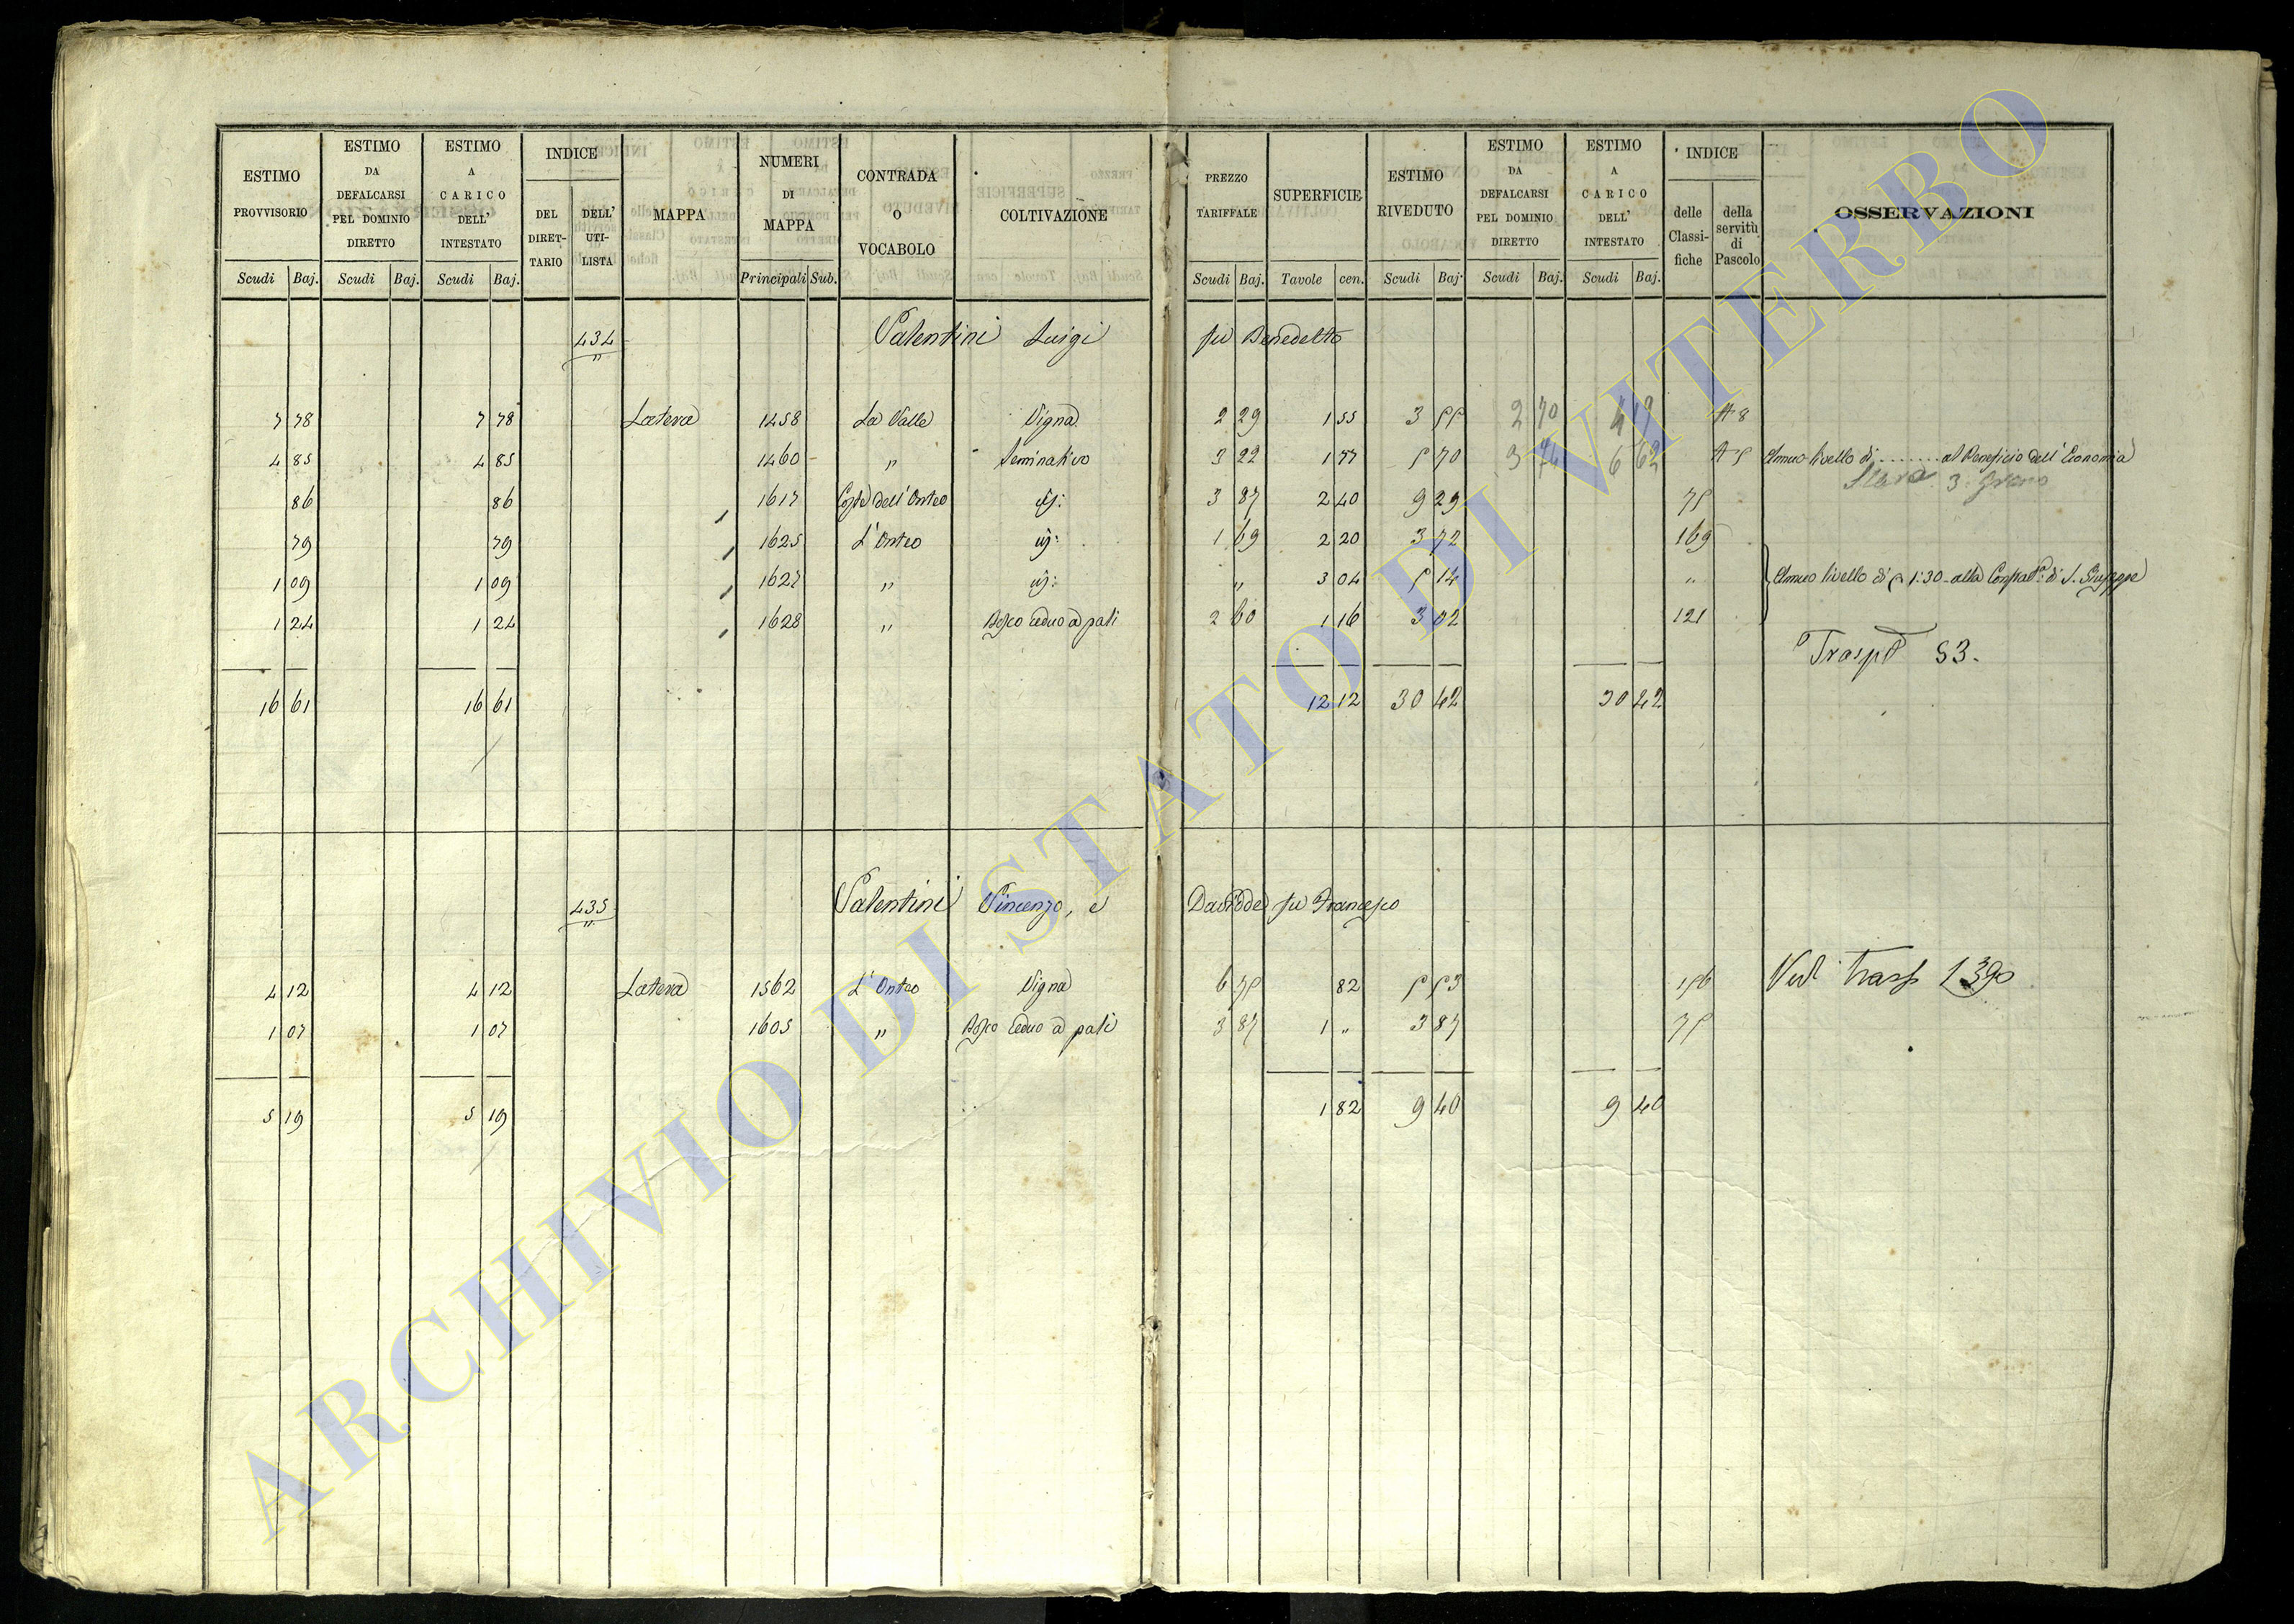 ESTIMO PROVVISORIO | ESTIMO DA DEFALCARSI PEL DOMINIO DIRETTO | ESTIMO A CARICO DELL' INTESTATO | INDICE | MAPPA | NUMERI DI MAPPA | CONTRADA O VOCABOLO | COLTIVAZIONE | PREZZO TARIFFALE | SUPERFICIE | ESTIMO RIVEDUTO | ESTIMO DA DEFALCARSI PEL DOMINIO DIRETTO | ESTIMO A CARICO DELL' INTESTATO | INDICE | OSSERVAZIONI
DEL DIRET-TARIO | DELL' UTI-LISTA | delle Classi-fiche | della servitù di Pascolo
Scudi | Baj. | Scudi | Baj. | Scudi | Baj. | Principali | Sub. | Scudi | Baj. | Tavole | cen. | Scudi | Baj. | Scudi | Baj. | Scudi | Baj.
434 Valentini Luigi fu Benedetto
7 78 | 7 78 | Latera | 1458 | La Valle | Vigna | 2 29 | 1 55 | 3 55 | 2 70 | A 8
4 85 | 4 85 | 1460 | " | Seminativo | 3 22 | 1 77 | 5 70 | 3 74 | 6 62 | A 5 | Annuo livello di ........ al Beneficio dell' Economia
3 Grano
86 | 86 | 1617 | Coste dell' Onteo | id: | 3 87 | 2 40 | 9 29 | 75
79 | 79 | 1625 | L' Onteo | id: | 1 69 | 2 20 | 3 72 | 169
1 09 | 1 09 | 1627 | " | id: | " | 3 04 | 5 14 | " | Annuo livello di 1:30 alla Compa. di S. Giuseppe
1 24 | 1 24 | 1628 | " | Bosco ceduo a pali | 2 60 | 1 16 | 3 02 | 121
Trasp 53.
16 61 | 16 61 | 12 12 | 30 42 | 30 42
435 Valentini Vincenzo, e Davidde fu Francesco
4 12 | 4 12 | Latera | 1562 | L' Onteo | Vigna | 6 75 | 82 | 5 53 | 156 | Vedi Trasp 1390
1 07 | 1 07 | 1605 | " | Bosco ceduo a pali | 3 87 | 1 " | 3 87 | 75
5 19 | 5 19 | 1 82 | 9 40 | 9 40
ARCHIVIO DI STATO DI VITERBO